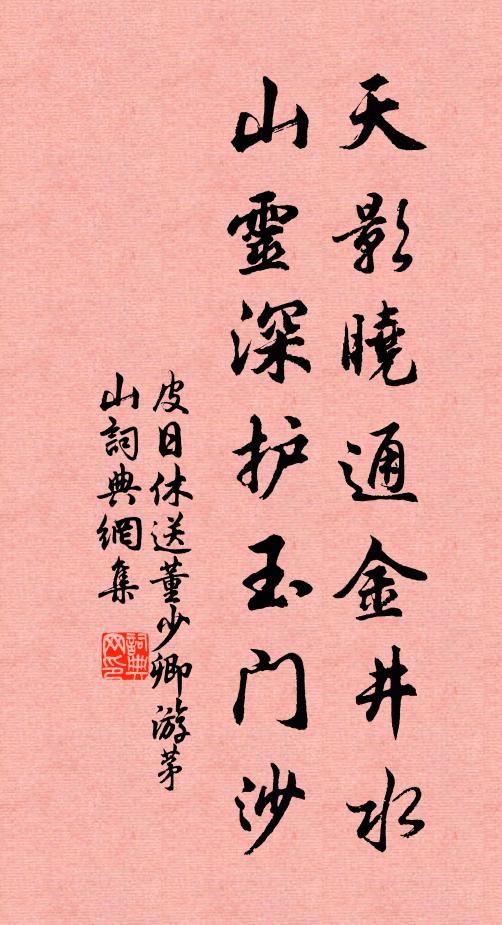 天影曉通金井水
山靈深护玉门沙
皮日休送董少卿游茅
山詞典網集
詞典网印